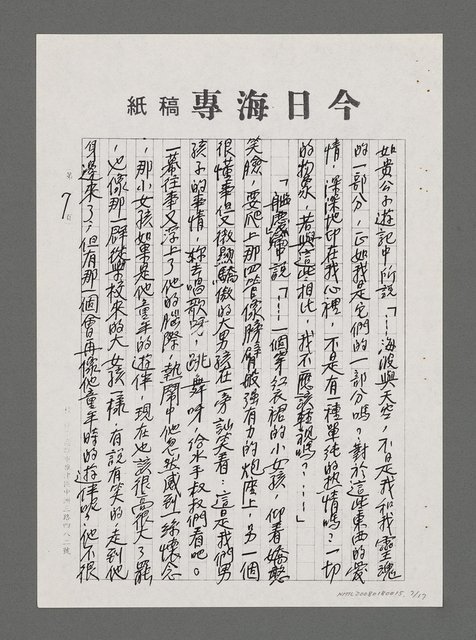 今日海專 稿紙
如貴公子遊記中所說「……海波與天空，不是我和我靈魂
的一部分，正如我是它們的一部分嗎？對於這些東西的愛
情，深深地印在我心裡，不是有一種單純的熱情嗎？一切
的物象，若與這些相比，我不應該輕視嗎？……」
「艦慶」中說「……一個穿紅衣裙的小女孩，仰着嬌憨
笑臉，要爬上那四管像臂般強有力的炮座上，另一個
很懂事但又微顯驕傲的大男孩在一旁訕笑着：這是我們男
孩子的事情，妳去唱歌呀，跳舞呀，給水手叔叔們看吧。
一幕往事又浮上了他的腦際，熱鬧中他忽然感到一絲悵念
，那小女孩如果是他童年的遊伴，現在也該很高很大了罷
，也像那一群從學校來的大女孩一樣，有說有笑的，走到他
身邊來了，但有那一個會再像他童年時的遊伴呢？他不很
第 7 頁
NMTL20080180015 7/17